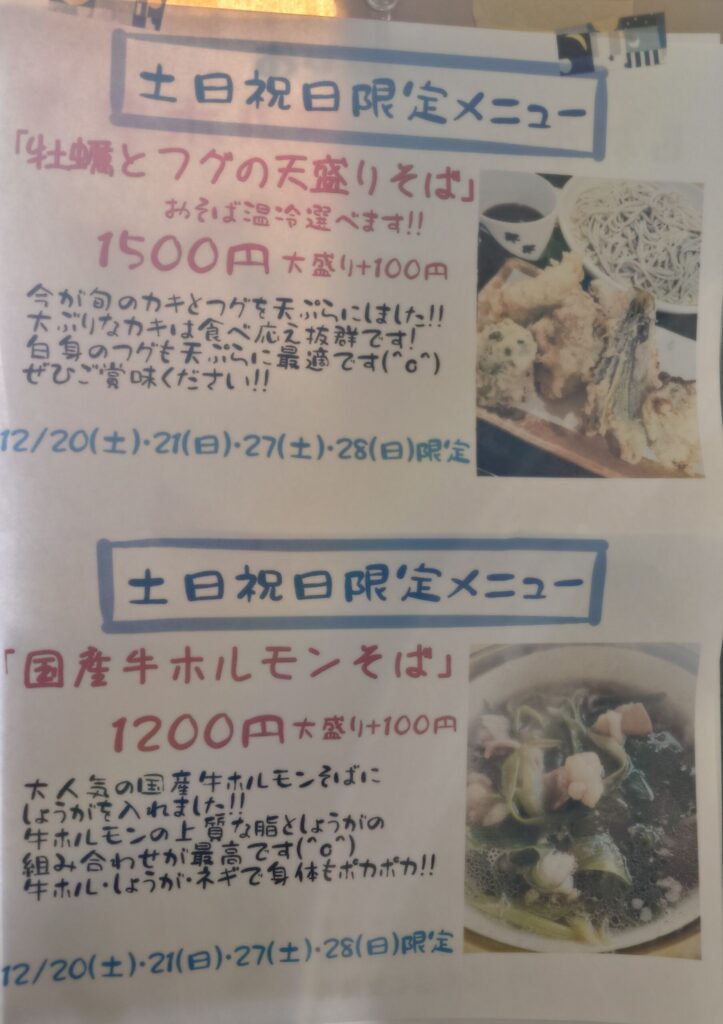 土日祝日限定メニュー
「牡蠣とフグの天盛りそば」
おそば温冷選べます!!
1500円 大盛り+100円
今が旬のカキとフグを天ぷらにしました!!
大ぶりなカキは食べ応え抜群です!
白身のフグも天ぷらに最適です(^o^)
ぜひご賞味ください!!
12/20(土)・21(日)・27(土)・28(日)限定
土日祝日限定メニュー
「国産牛ホルモンそば」
1200円 大盛り+100円
大人気の国産牛ホルモンそばに
しょうがを入れました!!
牛ホルモンの上質な脂としょうがの
組み合わせが最高です(^o^)
牛ホル・しょうが・ネギで身体もポカポカ!!
12/20(土)・21(日)・27(土)・28(日)限定